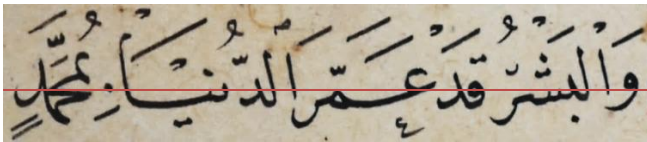 وَالْبَشْرُ قَدْ عَمَّرَ الدُّنْيَا بِمُحَمَّدٍ